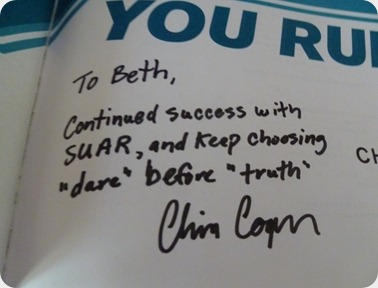 YOU RU
To Beth,
Continued success with
SUAR, and keep choosing
CH
"dare" before "truth"